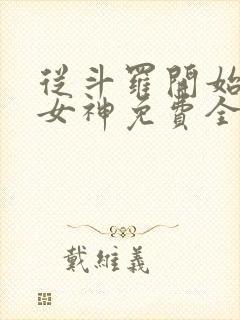 從斗羅開始
女神免費全
戴維義